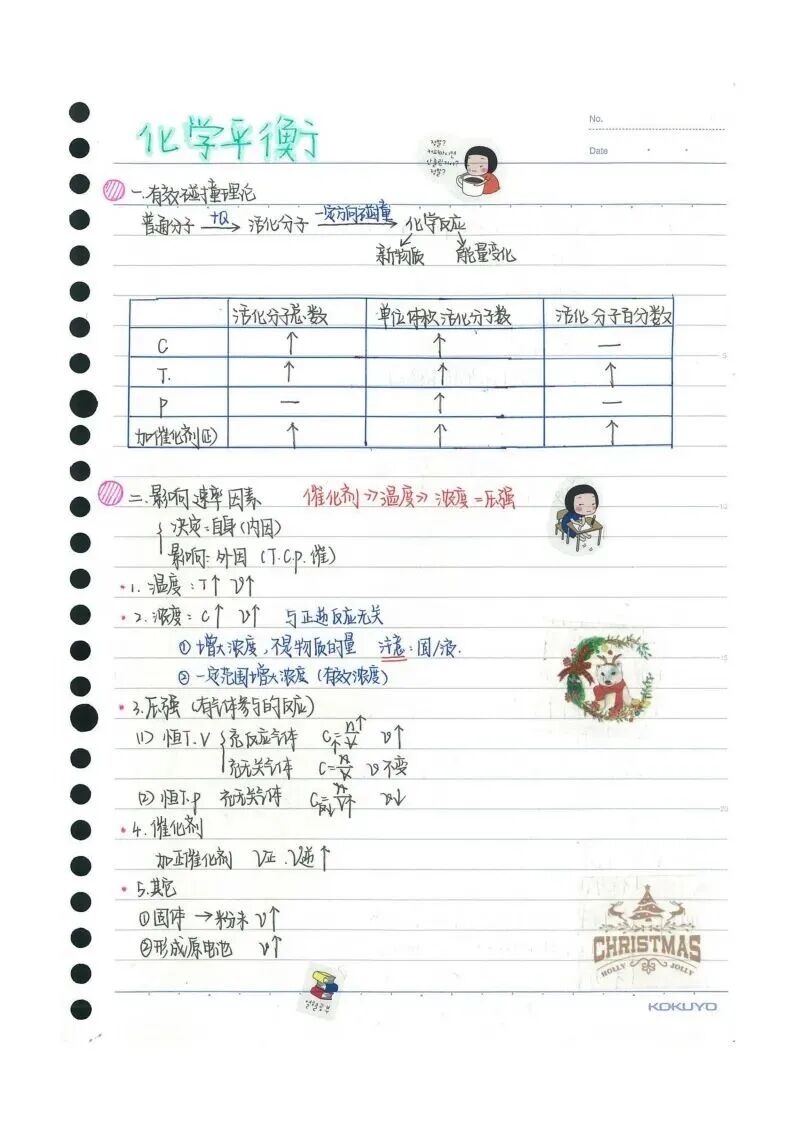 化学平衡
No.
Date
一.有效碰撞理论
普通分子 +Q→ 活化分子 一定方向碰撞→ 化学反应
新物质 能量变化
活化分子总数 单位体积活化分子数 活化分子百分数
C ↑ ↑ —
T. ↑ ↑ ↑
P — ↑ —
加催化剂(正) ↑ ↑ ↑
二.影响速率因素 催化剂》温度》浓度=压强
决定:自身(内因)
影响:外因(T.C.p.催)
1.温度:T↑ v↑
2.浓度:C↑ v↑ 与正逆反应无关
①增大浓度,不是物质的量 注意:固/液.
②一定范围增大浓度(有效浓度)
3.压强(有气体参与的反应)
(1) 恒T.V {充反应气体 C↑=n↑/V v↑
充无关气体 C=n/V v不变
(2) 恒T.p 充无关气体 C↓=n/V↑ v↓
4.催化剂
加正催化剂 V正.V逆↑
5.其它
①固体→粉末 v↑
②形成原电池 v↑
CHRISTMAS
HOLLY JOLLY
열혈공부
KOKUYO